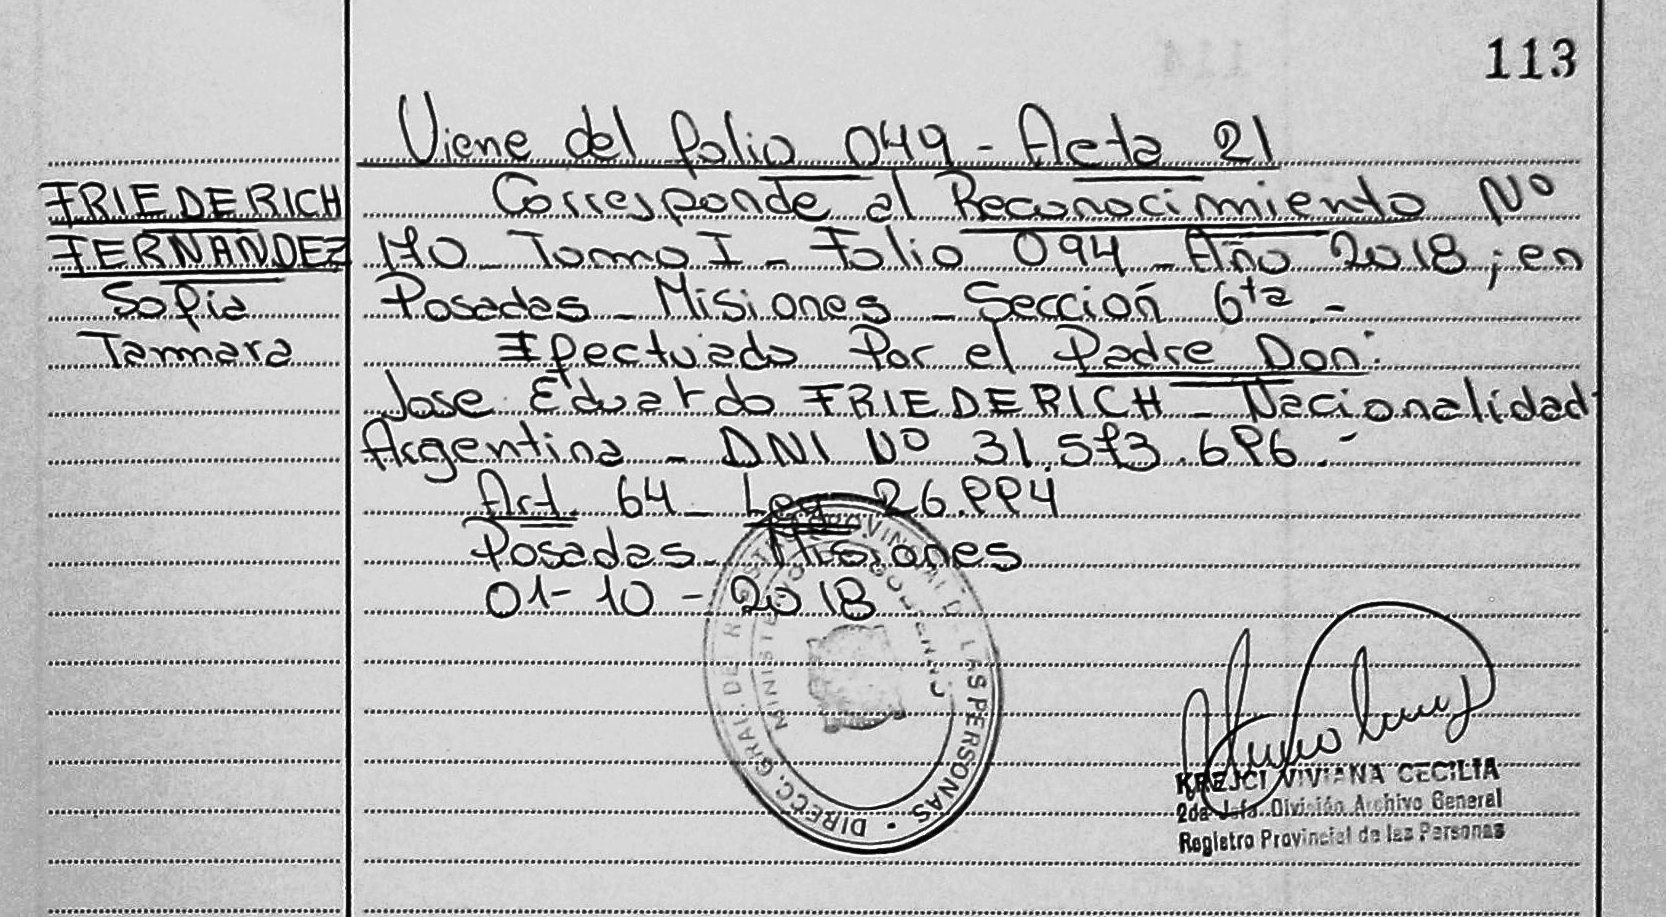 113
Viene del folio 049 - Acta 21
FRIEDERICH
FERNANDEZ
Sofia
Tamara
Corresponde al Reconocimiento Nº
170 - Tomo I - Folio 094 - Año 2018; en
Posadas - Misiones - Sección 6ta -
Efectuado Por el Padre Don:
Jose Eduardo FRIEDERICH - Nacionalidad
Argentina - DNI Nº 31.573.696.-
Art. 64 - Ley 26.994
Posadas - Misiones
01-10-2018
DIRECC. GRAL. DE REGISTRO PROVINCIAL DE LAS PERSONAS
MINISTERIO GOBIERNO
KREJCI VIVIANA CECILIA
2da Jefa División Archivo General
Registro Provincial de las Personas